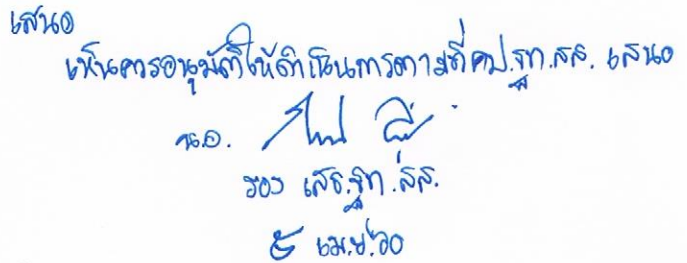 เสนอ
เห็นควรอนุมัติให้ดำเนินการตามที่ คป.ฐท.สส. เสนอ
น.อ.
รอง เสธ.ฐท.สส.
๕ เม.ย.๖๐